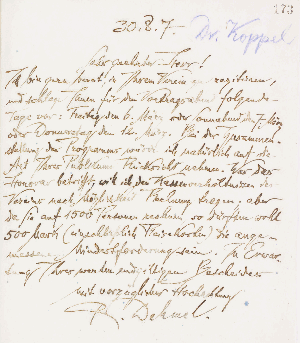 173
30.8.7.
Dr. Koppel
Sehr geehrter Herr!
Ich bin gern bereit, in Ihrem Verein zu rezitieren,
und schlage Ihnen für den Vortragsabend folgende
Tage vor: Freitag den 6. März oder Sonnabend den 7. März
oder Donnerstag den 12. März. Bei der Zusammen-
stellung des Programms würde ich natürlich auf die
Art Ihres Publikums Rücksicht nehmen. Was das
Honorar betrifft, will ich den Kassenverhältnissen des
Vereins nach Möglichkeit Rechnung tragen; aber
da Sie auf 1000 Personen rechnen, so dürften wohl
500 Mark (einschließlich Reisekosten) die ange-
messene Mindestforderung sein. In Erwar-
tung Ihres Bescheides
mit vorzüglicher Hochachtung
R. Dehmel.